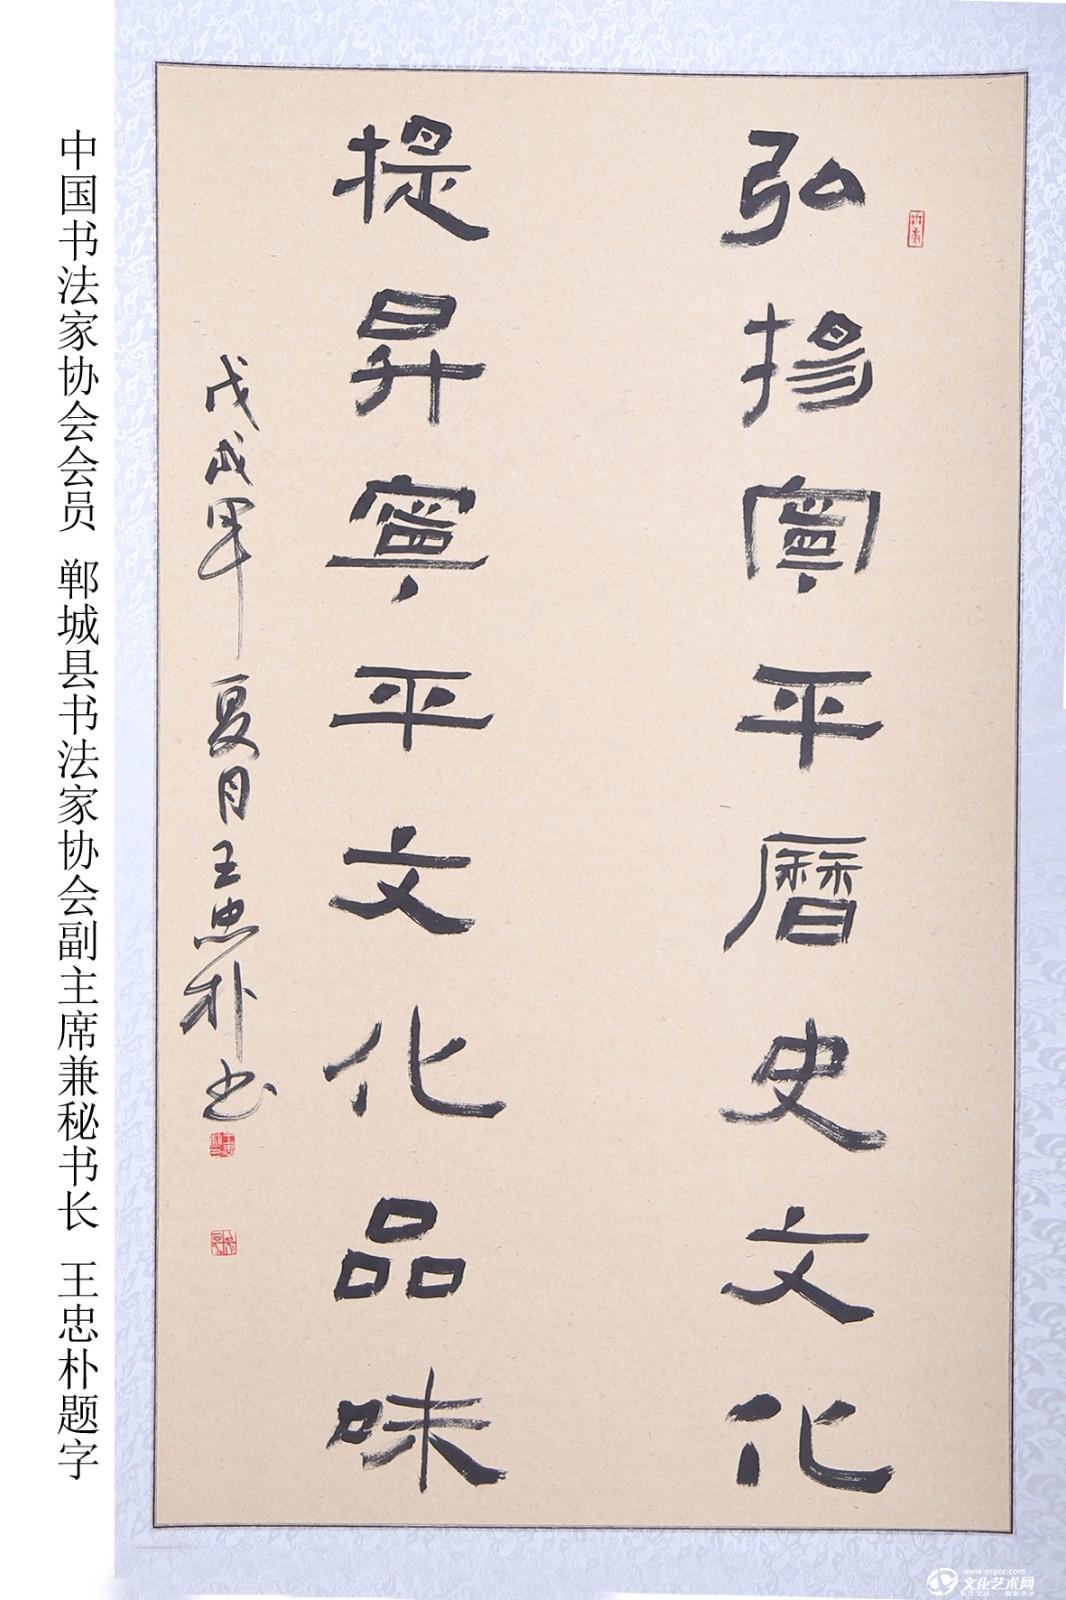 弘揚寧平曆史文化
提昇寧平文化品味
戊戌年夏月王忠朴书
中国书法家协会会员 郸城县书法家协会副主席兼秘书长 王忠朴题字
www.orgcc.com
文化艺术网